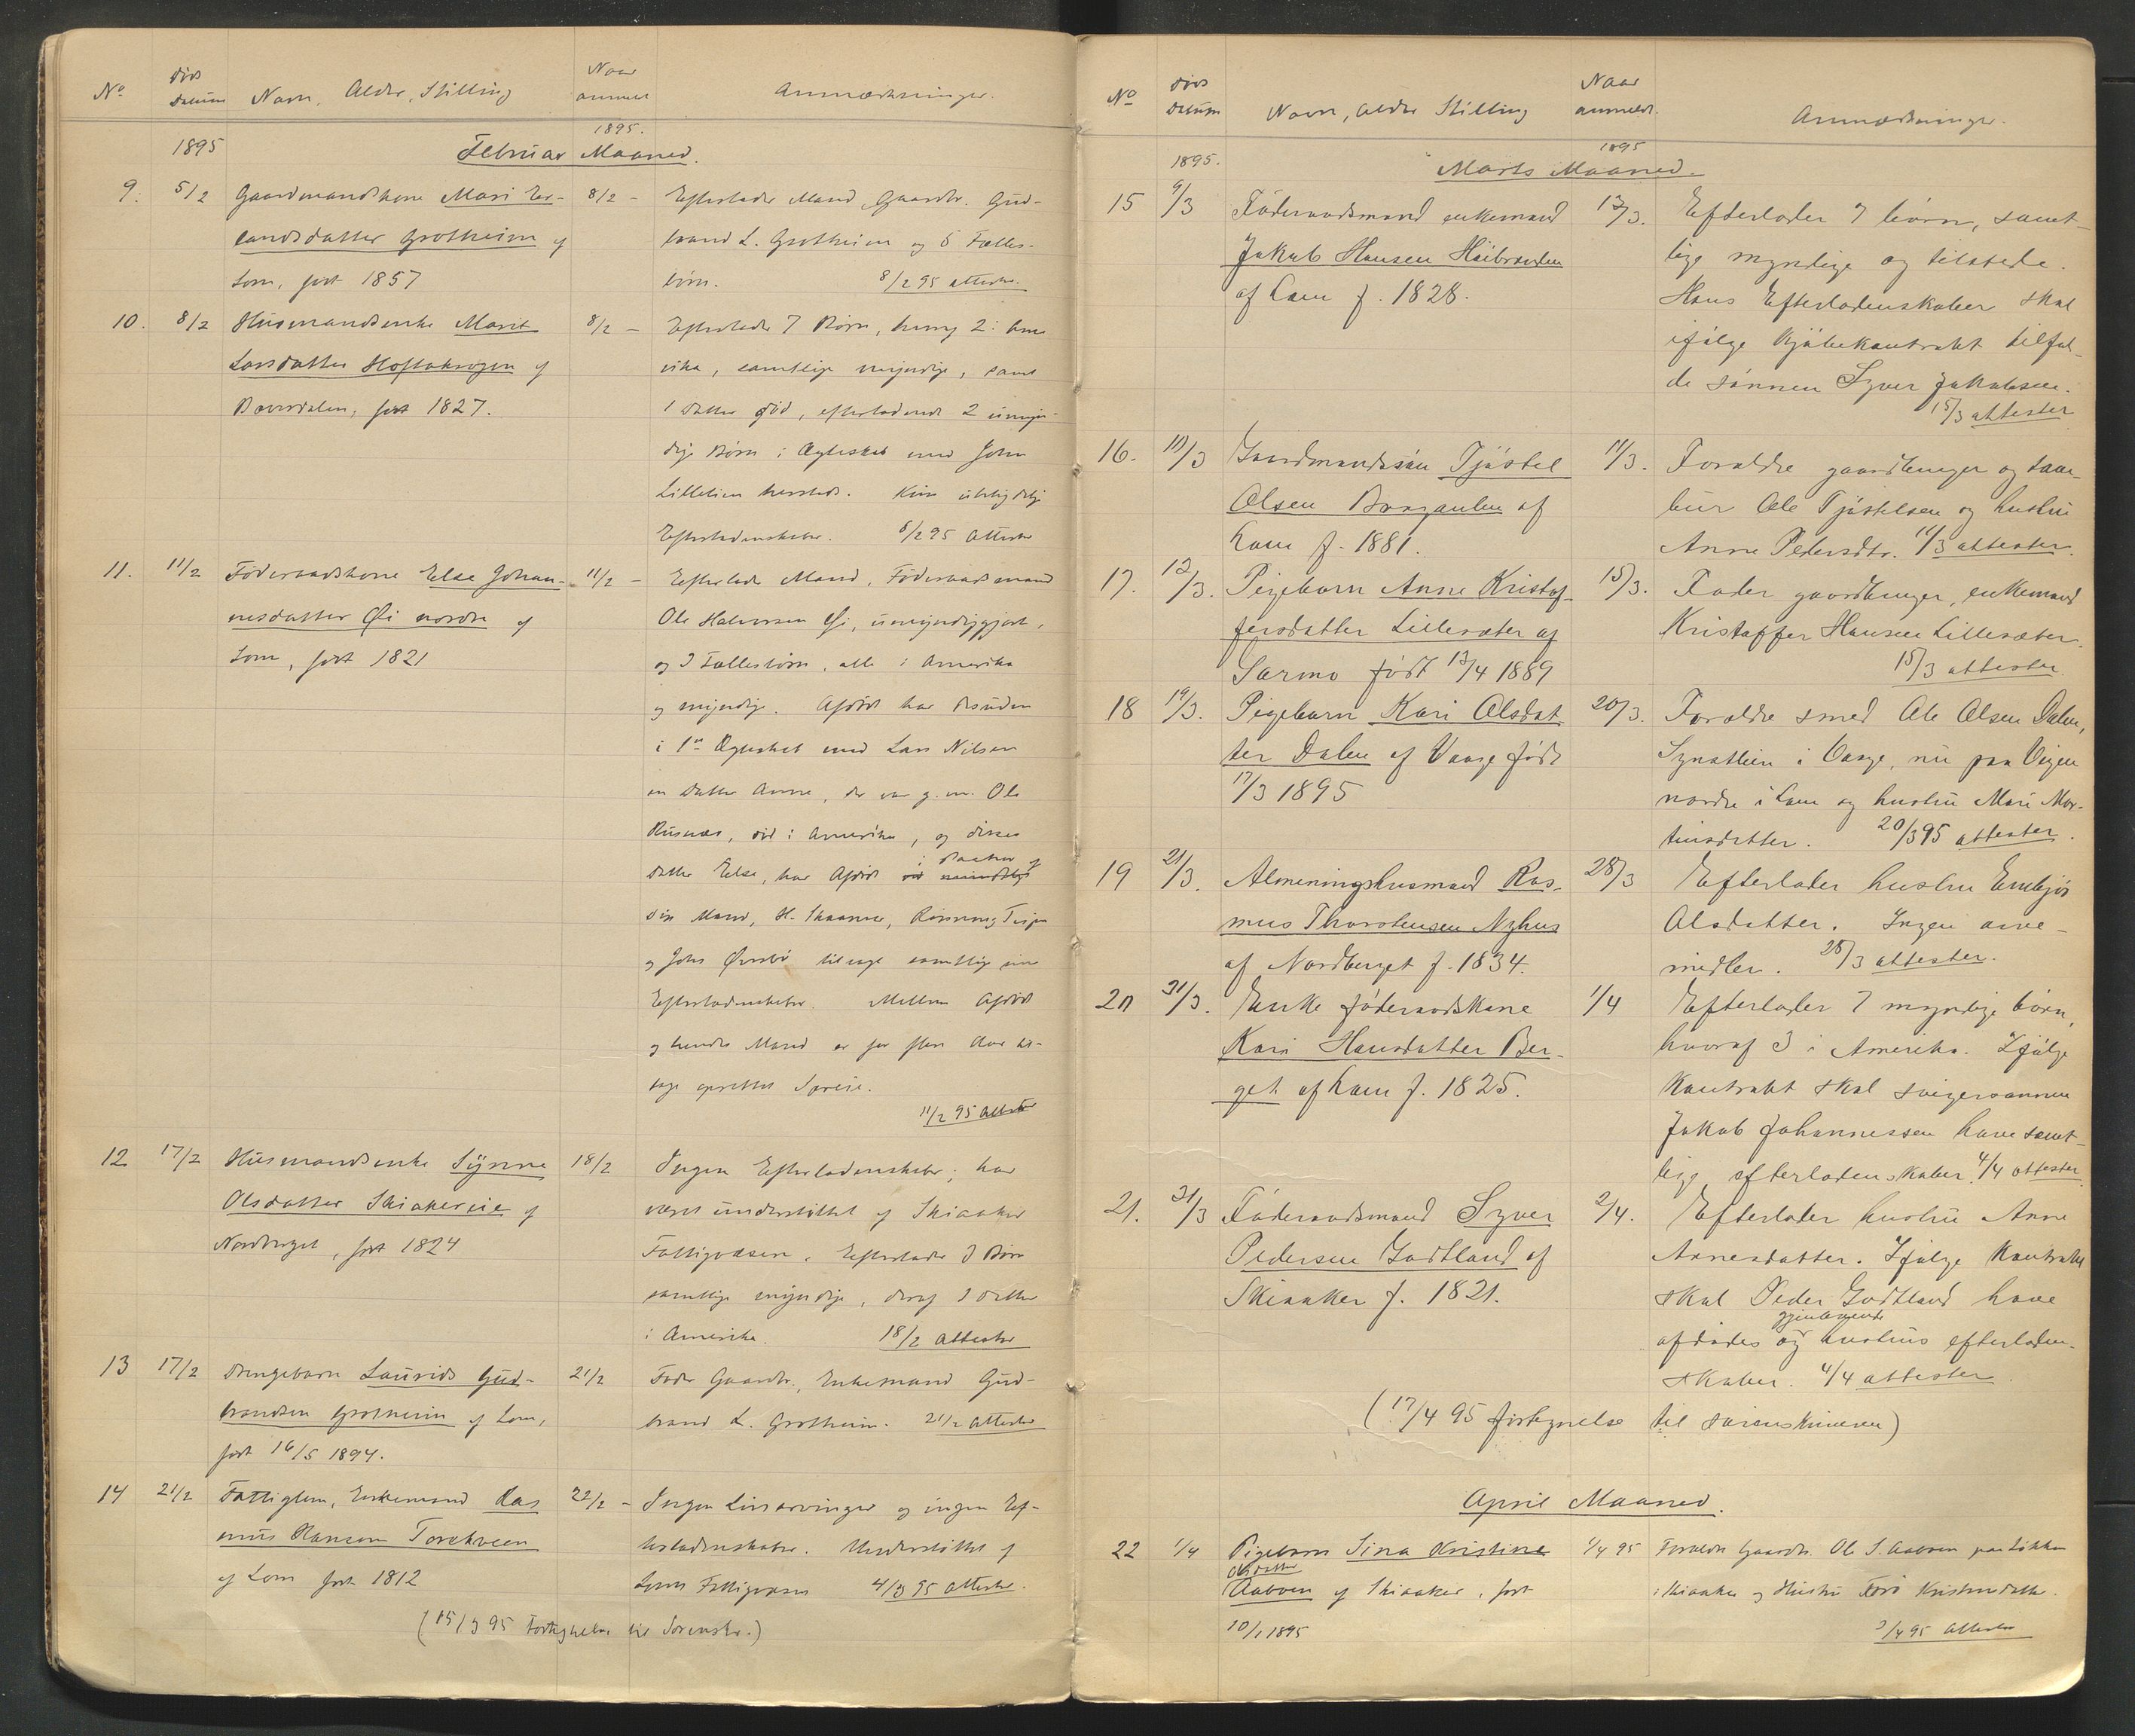 No
Døds
Datum
Navn, Alder, Stilling
Naar
anmeldt
Anmærkninger.
1895
1895.
Februar Maaned.
9.
5/2
Gaardmandskone Mari Er-
landsdatter Grotheim af
Lom, født 1857
8/2 -
Efterlader Mand, Gaardbr. Gud-
brand L. Grotheim og 5 Fælles-
børn.
8/2 95 attester.
10.
8/2
Husmandsenke Marit
Larsdatter Hoftakrogen af
Bæverdalen, født 1827.
8/2 -
Efterlader 7 Børn, hvoraf 2 i Ame
rika, samtlige myndige, samt
1 Datter død, efterladende 2 umyn-
dige Børn i Ægteskab med John
Lillelien hersteds. Kun ubetydelige
Efterladenskaber.
8/2 95 Attester
11.
11/2
Föderaadskone Else Johan-
nesdatter Øi nordre af
Lom, født 1821
11/2 -
Efterlader Mand, Föderaadsmand
Ole Halvorsen Øi, umyndiggjort,
og 3 Fællesbørn, alle i Amerika
og myndige. Afdøde har desuden
i 1ste Ægteskab med Lars Nilsen
en Datter Anne, der var g. m. Ole
Rusnæs, død i Amerika, og disses
Datter Else, har Afdøde ved mundtlig
i Paahør af
sin Mand, H. Skaanar, Rønnaug
og Johs
tilsagt samtlige sine
Efterladenskaber. Mellem Afdøde
og hendes Mand er for flere Aar til-
bage oprettet Særeie.
11/2 95 Attester
12
17/2
Husmandsenke Synne
Olsdatter Skiakereie af
Nordberget, født 1824
18/2
Ingen Efterladenskaber, har
været understøttet af Skiaaker
Fattigvæsen. Efterlader 3 Børn
samtlige myndige, deraf 1 datter
i Amerika.
18/2 attester
13
17/2
Drengebarn Laurids Gud-
brandsen Grotheim af Lom,
født 16/5 1894.
21/2
Fader Gaardbr., Enkemand Gud-
brand L. Grotheim. 21/2 attester
14
21/2
Fattiglem, Enkemand Ras
mus Hansen Torekveen
af Lom født 1812
22/2 -
Ingen Livsarvinger og ingen Ef-
terladenskaber. Understøttet af
Loms Fattigvæsen 4/3 95 attester.
(15/3 95 Fortegnelse til Sorenskr.)
No
Døds
Datum
Navn, Alder Stilling
Naar
anmeldt.
Anmærkninger.
1895.
1895
Marts Maaned.
15
9/3
Föderaadsmand enkemand
Jakob Hansen Haibraaten
af Lom f. 1828.
13/3.
Efterlader 7 börn, samt-
lige myndige og tilstede.
Hans Efterladenskaber skal
ifölge Kjöbekontrakt tilfal-
de sönnen Syver Jakobsen.
15/3 attester
16.
10/3
Gaardmandssön Tjöstel
Olsen Brugaulen af
Lom f. 1881.
11/3.
Forældre gaardbruger og tam-
bur Ole Tjöstelsen og hustru
Anne Pedersdtr. 11/3 attester.
17.
12/3.
Pigebarn Anne Kristof-
fersdatter Lillesæter af
Garmo født 13/4 1889
15/3.
Fader gaardbruger, enkemand
Kristoffer Hansen Lillesæter.
15/3 attester
18
19/3.
Pigebarn Kari Olsdat
ter Dalen af Vaage född
17/3 1895
20/3.
Forældre smed Ole Olsen Dalen,
Synstlien i Vaage, nu paa Vigen
nordre i Lom og hustru Mari Mor-
tinsdatter. 20/3 95 attester.
19
21/3.
Almenningshusmand Ras-
mus Thorstensen Nyhus
af Nordberget f. 1834.
28/3
Efterlader hustru Embjör
Olsdatter. Ingen arve-
midler. 28/3 attester.
20
31/3.
Enke föderaadskone
Kari Hansdatter Ber-
get af Lom f. 1825.
1/4
Efterlader 7 myndige börn,
hvoraf 3 i Amerika. Ifölge
Kontrakt skal svigersønnen
Jakob Johannessen have samt-
lige efterladenskaber. 4/4 attester
21.
31/3
Föderaadsmand Syver
Pedersen Gjötland af
Skiaaker f. 1821.
2/4.
Efterlader hustru Anne
Annesdatter. Ifölge Kontrakt
skal Peder Gjötland have
afdödes og hustrus efterladen-
gjenlevende
skaber. 4/4 attester.
(17/4 95 fortegnelse til sorenskriveren)
April Maaned.
22
1/4
Pigebarn Sina Kristine
Olsdatter
Aaboen af Skiaaker, født
10/1 1895
1/4 95
Forældre Gaardbr. Ole S. Aaboen paa Løkken
i Skiaaker og Hustru Torø Kristensdatter.
3/4 95 Attester